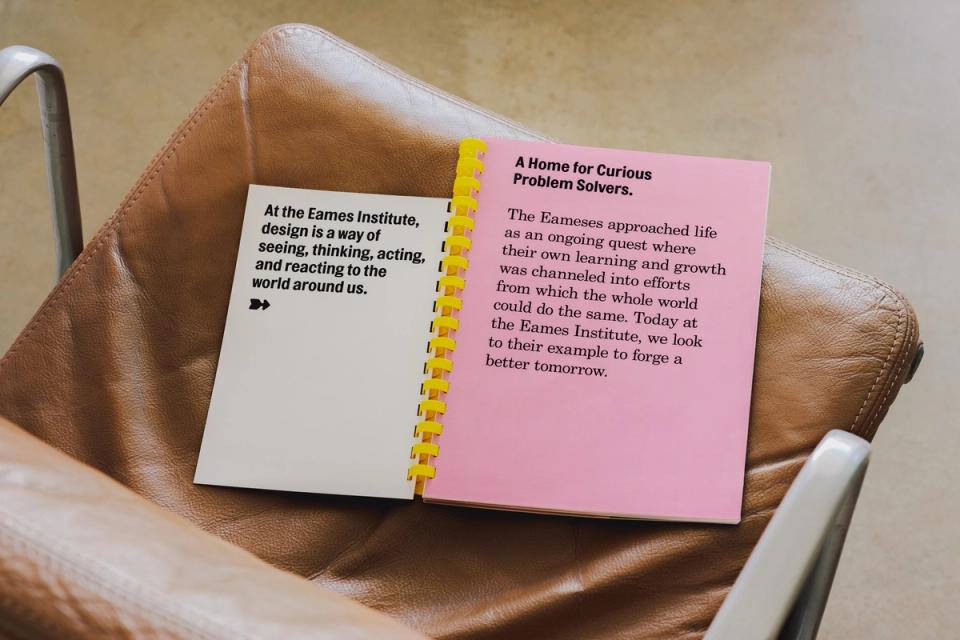 At the Eames Institute,
design is a way of
seeing, thinking, acting,
and reacting to the
world around us.
A Home for Curious
Problem Solvers.
The Eameses approached life
as an ongoing quest where
their own learning and growth
was channeled into efforts
from which the whole world
could do the same. Today at
the Eames Institute, we look
to their example to forge a
better tomorrow.